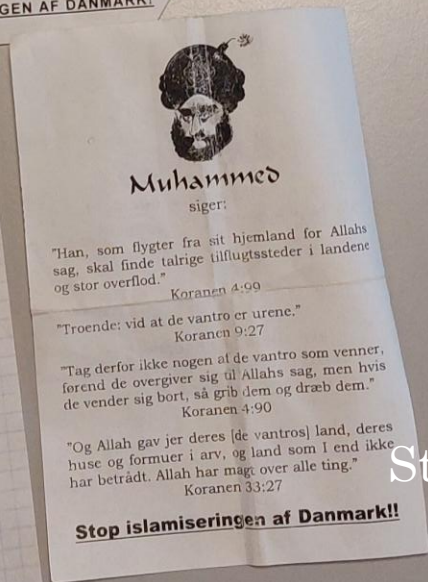 GEN AF DANMARK!
Muhammed
siger:
"Han, som flygter fra sit hjemland for Allahs
sag, skal finde talrige tilflugtssteder i landene
og stor overflod."
Koranen 4:99
"Troende: vid at de vantro er urene."
Koranen 9:27
"Tag derfor ikke nogen af de vantro som venner,
førend de overgiver sig til Allahs sag, men hvis
de vender sig bort, så grib dem og dræb dem."
Koranen 4:90
"Og Allah gav jer deres [de vantros] land, deres
huse og formuer i arv, og land som I end ikke
har betrådt. Allah har magt over alle ting."
Koranen 33:27
Stop islamiseringen af Danmark!!
St